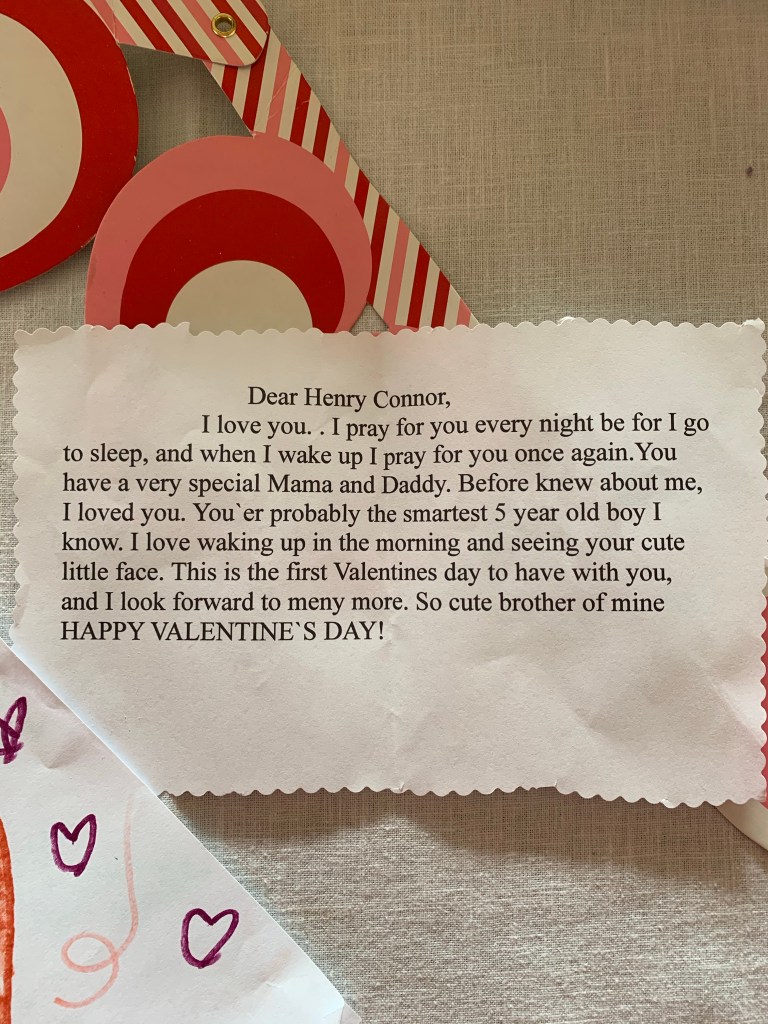 Dear Henry Connor,
I love you. . I pray for you every night be for I go
to sleep, and when I wake up I pray for you once again.You
have a very special Mama and Daddy. Before knew about me,
I loved you. You`er probably the smartest 5 year old boy I
know. I love waking up in the morning and seeing your cute
little face. This is the first Valentines day to have with you,
and I look forward to meny more. So cute brother of mine
HAPPY VALENTINE`S DAY!